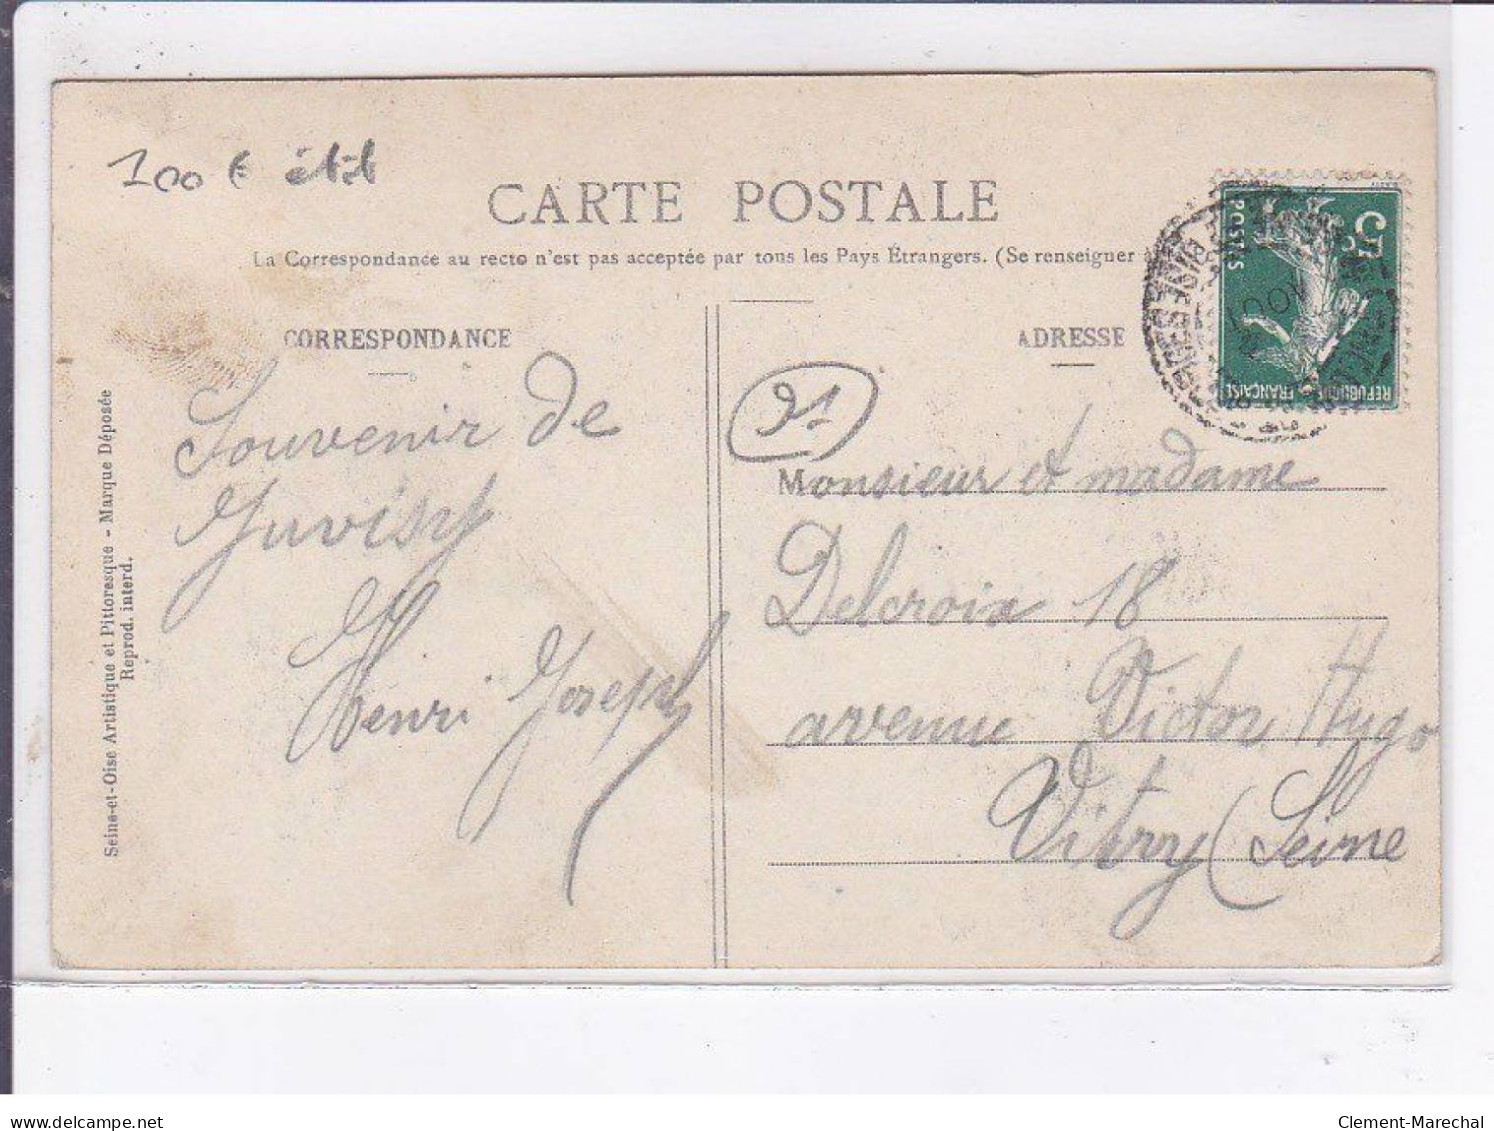 100 €
CARTE POSTALE
La Correspondance au recto n'est pas acceptée par tous les Pays Étrangers. (Se renseigner à
CORRESPONDANCE
Souvenir de
Juvisy
Henri Joseph
ADRESSE
91
Monsieur et madame
Delcroix 18
avenue Victor Hugo
Vitry (Seine
Seine-et-Oise Artistique et Pittoresque - Marque Déposée
Reprod. interd.
5c
POSTES
REPUBLIQUE FRANÇAISE
www.delcampe.net
Clement-Marechal